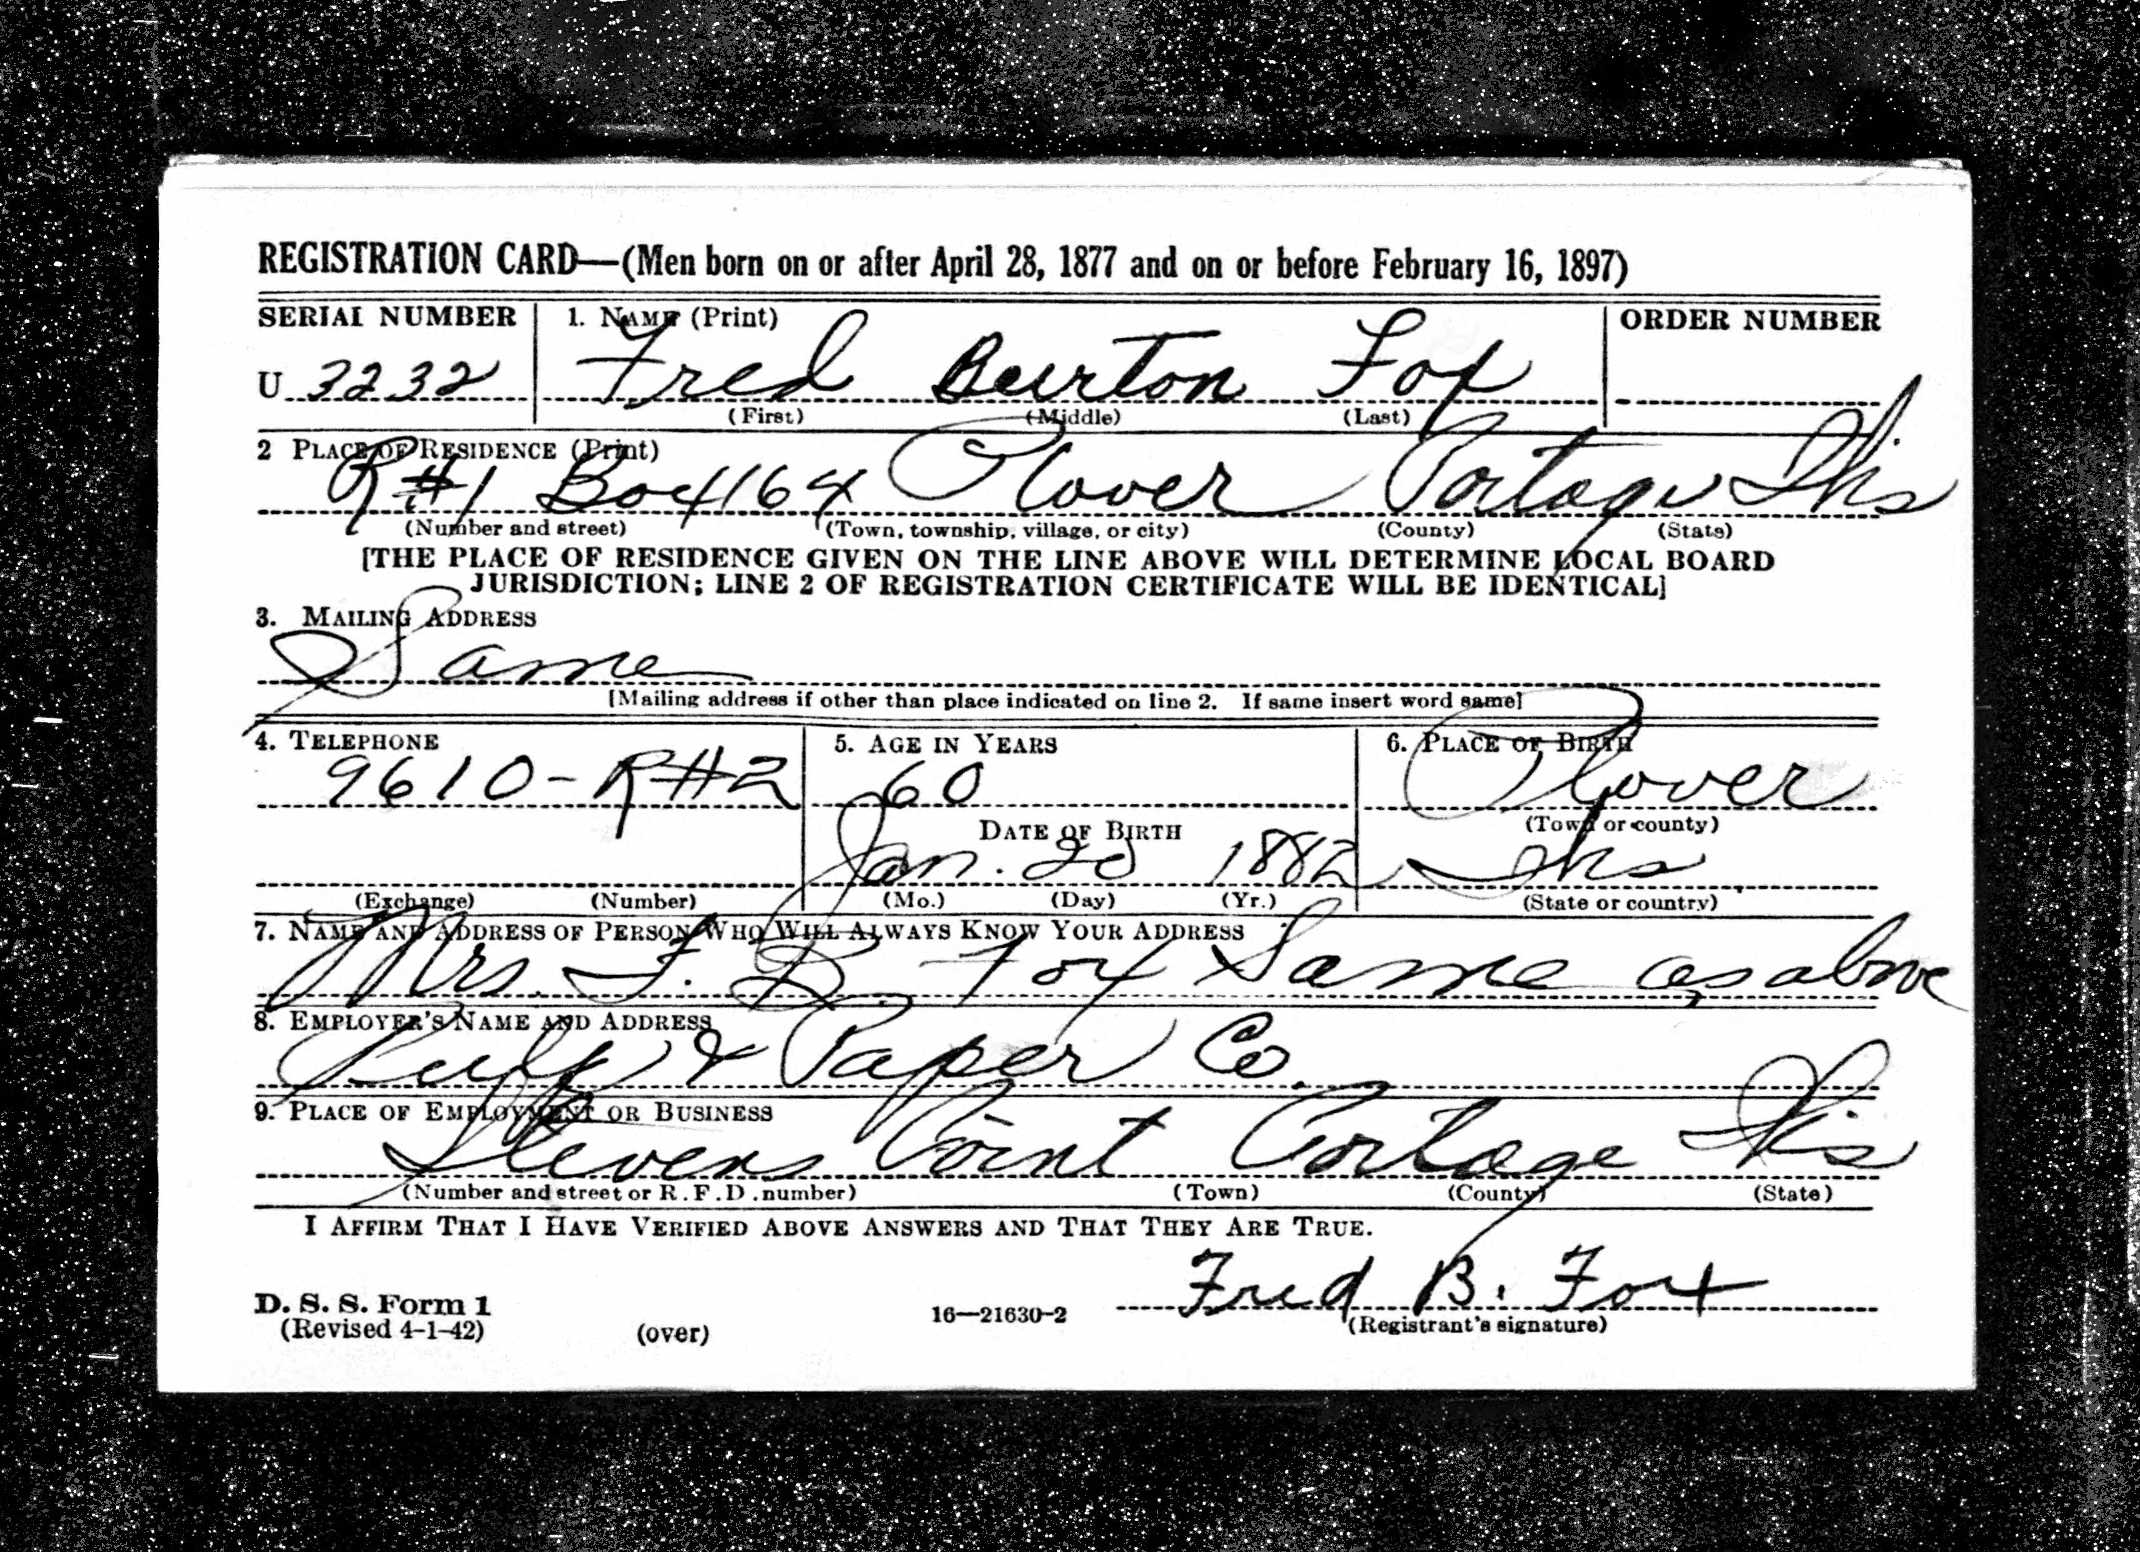 REGISTRATION CARD—(Men born on or after April 28, 1877 and on or before February 16, 1897)
SERIAL NUMBER 1. NAME (Print) ORDER NUMBER
U 3232 Fred Burton Fox
(First) (Middle) (Last)
2 PLACE OF RESIDENCE (Print)
R#1 Box 164 Plover Portage Wis
(Number and street) (Town, township, village, or city) (County) (State)
[THE PLACE OF RESIDENCE GIVEN ON THE LINE ABOVE WILL DETERMINE LOCAL BOARD
JURISDICTION; LINE 2 OF REGISTRATION CERTIFICATE WILL BE IDENTICAL]
3. MAILING ADDRESS
Same
[Mailing address if other than place indicated on line 2. If same insert word same]
4. TELEPHONE 5. AGE IN YEARS 6. PLACE OF BIRTH
9610-R#2 60 Plover
DATE OF BIRTH (Town or county)
Jan. 1882 Wis
(Exchange) (Number) (Mo.) (Day) (Yr.) (State or country)
7. NAME AND ADDRESS OF PERSON WHO WILL ALWAYS KNOW YOUR ADDRESS
Mrs. F. B. Fox Same as above
8. EMPLOYER'S NAME AND ADDRESS
Pulp & Paper Co.
9. PLACE OF EMPLOYMENT OR BUSINESS
Stevens Point Portage Wis
(Number and street or R.F.D. number) (Town) (County) (State)
I AFFIRM THAT I HAVE VERIFIED ABOVE ANSWERS AND THAT THEY ARE TRUE.
Fred B. Fox
D. S. S. Form 1 16—21630-2 (Registrant's signature)
(Revised 4-1-42) (over)